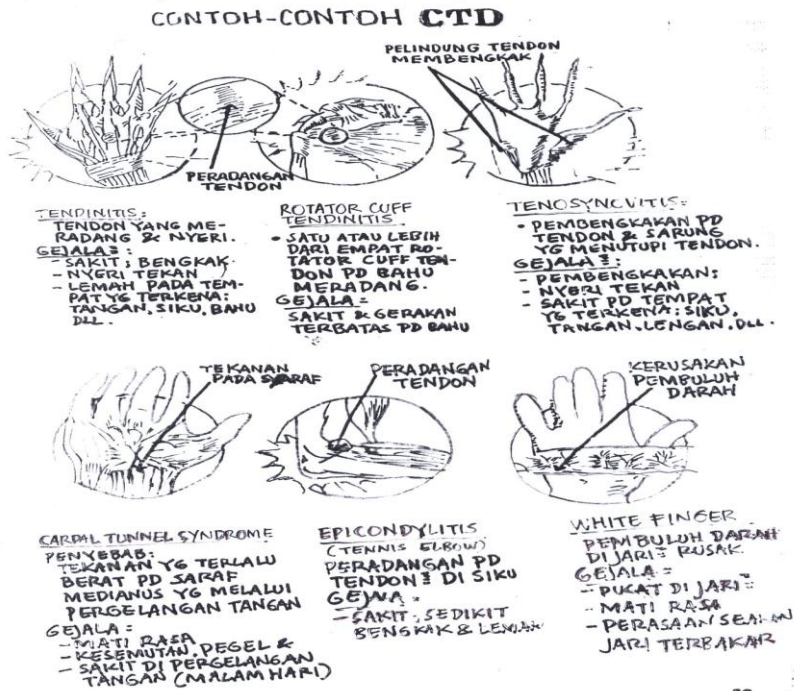 CONTOH-CONTOH CTD
PELINDUNG TENDON
MEMBENGKAK
PERADANGAN
TENDON
TENDINITIS:
TENDON YANG ME-
RADANG & NYERI.
GEJALA²:
- SAKIT, BENGKAK
- NYERI TEKAN
- LEMAH PADA TEM-
PAT YG TERKENA:
TANGAN, SIKU, BAHU
DLL.
ROTATOR CUFF
TENDINITIS
• SATU ATAU LEBIH
DARI EMPAT RO-
TATOR CUFF TEN-
DON PD BAHU
MERADANG.
GEJALA:
SAKIT & GERAKAN
TERBATAS PD BAHU
TENOSYNCVITIS:
• PEMBENGKAKAN PD
TENDON & SARUNG
YG MENUTUPI TENDON.
GEJALA²:
- PEMBENGKAKAN;
- NYERI TEKAN
- SAKIT PD TEMPAT
YG TERKENA: SIKU,
TANGAN, LENGAN, DLL.
TEKANAN
PADA SYARAF
PERADANGAN
TENDON
KERUSAKAN
PEMBULUH
DARAH
CARPAL TUNNEL SYNDROME
PENYEBAB:
TEKANAN YG TERLALU
BERAT PD SARAF
MEDIANUS YG MELALUI
PERGELANGAN TANGAN
GEJALA:
- MATI RASA
- KESEMUTAN, PEGEL &
- SAKIT DI PERGELANGAN
TANGAN (MALAM HARI)
EPICONDYLITIS
(TENNIS ELBOW)
PERADANGAN PD
TENDON² DI SIKU
GEJALA:
- SAKIT, SEDIKIT
BENGKAK & LEMAH
WHITE FINGER
PEMBULUH DARAH
DI JARI² RUSAK.
GEJALA:
- PUCAT DI JARI²
- MATI RASA
- PERASAAN SEAKAN
JARI TERBAKAR